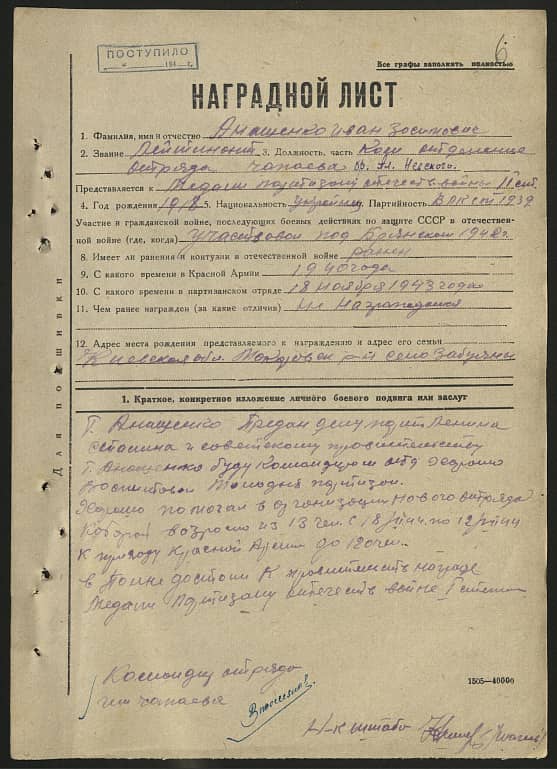 ПОСТУПИЛО
194 г.
6
Все графы заполнять полностью
НАГРАДНОЙ ЛИСТ
1. Фамилия, имя и отчество Анащенко Иван
2. Звание Лейтинонт 3. Должность, часть Ком отделения
отряда чапаева Невского.
Представляется к Медали партизану отечеств войны II степ
4. Год рождения 1918 5. Национальность украинец Партийность ВЛКСМ 1939
Участие в гражданской войне, последующих боевых действиях по защите СССР в отечествен-
ной войне (где, когда) участвовал под Брянском
8. Имеет ли ранения и контузии в отечественной войне ранен
9. С какого времени в Красной Армии 1940 года
10. С какого времени в партизанском отряде 18 ноября 1943 года
11. Чем ранее награжден (за какие отличия) Не Награждался
12. Адрес места рождения представляемого к награждению и адрес его семьи
Киевская обл. село
Для подшивки
1. Краткое, конкретное изложение личного боевого подвига или заслуг
Т. Анащенко Предан делу партии Ленина
Сталина и советскому правительству
Т. Анащенко буду Командиром отд Хорошо
Молодых партизан.
Хорошо помогал в организации Нового отряда
возрасло из 13 чел. с 18 по 12
К приходу Красной Армии до 120 чел.
в Полне достоин К правительств награде
Медали Партизану отечеств войне I степени
Командир отряда
им чапаева
1505—4000о
Н-к штаба